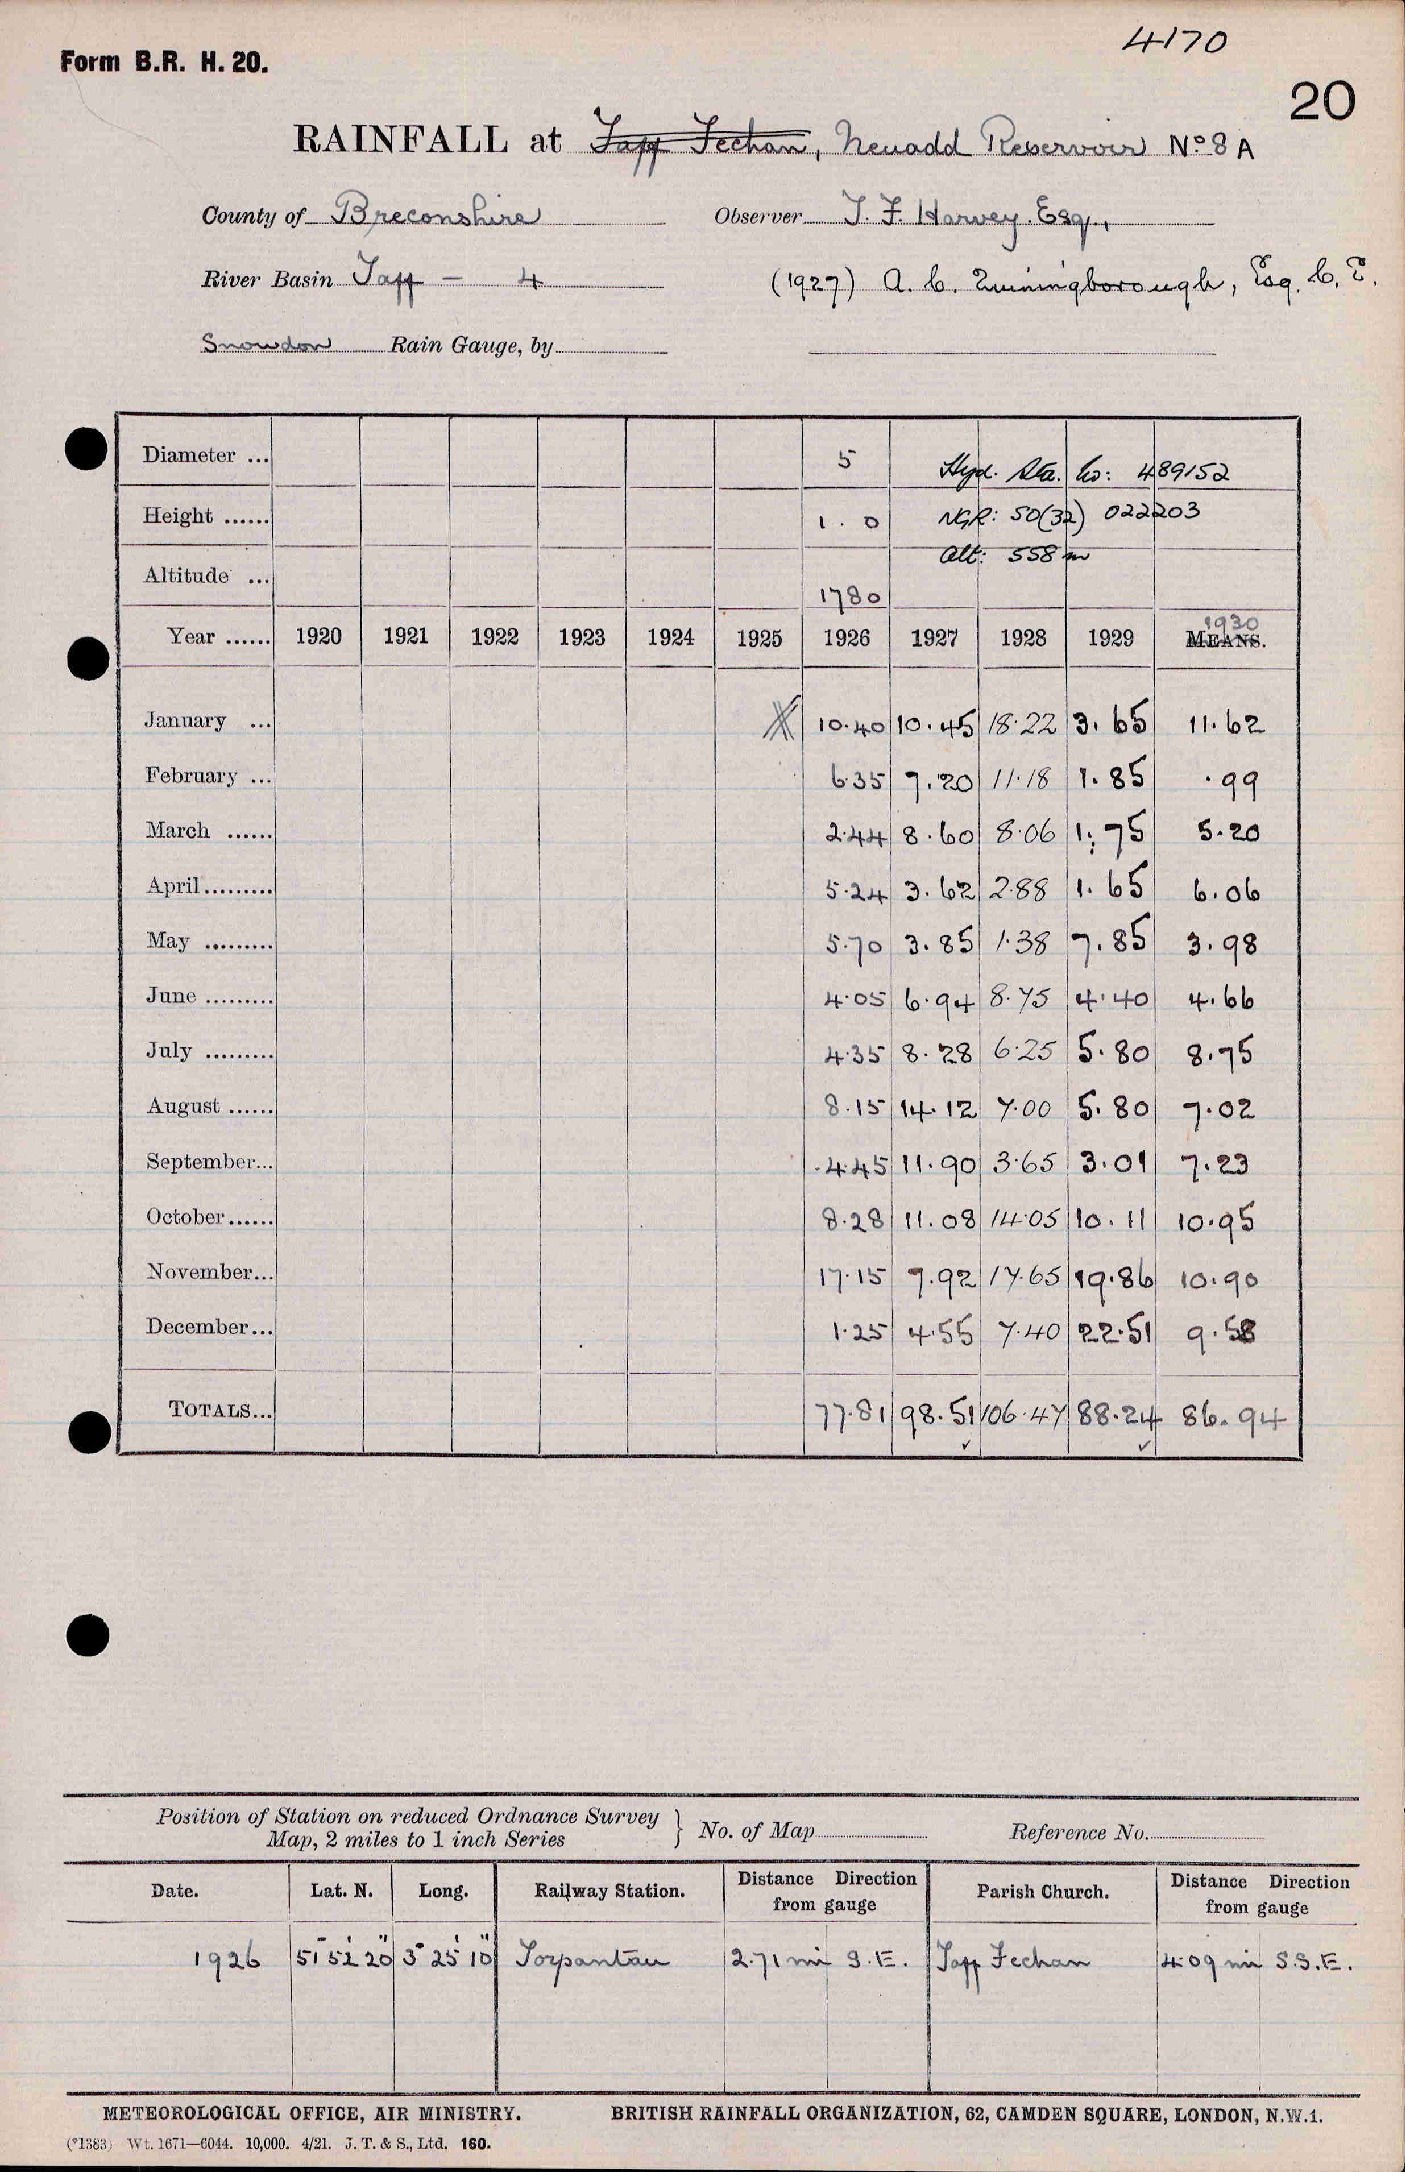 4170
Form B.R. H. 20.
20
RAINFALL at Taff Fechan, Neuadd Reservoir No 8 A
County of Breconshire Observer T. F. Harvey. Esq.,
River Basin Taff – 4 (1927) A. C. Twiningborough, Esq. C. E.
Snowdon Rain Gauge, by
Diameter ... 5 Hyd. Sta. No: 489152
Height ...... 1.0 NGR: SO(32) 022203
Alt: 558 m
Altitude ... 1780
1930
Year ...... 1920 1921 1922 1923 1924 1925 1926 1927 1928 1929 MEANS.
January ... 10.40 10.45 18.22 3.65 11.62
February ... 6.35 7.20 11.18 1.85 .99
March ...... 2.44 8.60 8.06 1.75 5.20
April ......... 5.24 3.62 2.88 1.65 6.06
May ......... 5.70 3.85 1.38 7.85 3.98
June ......... 4.05 6.94 8.75 4.40 4.66
July ......... 4.35 8.28 6.25 5.80 8.75
August ...... 8.15 14.12 7.00 5.80 7.02
September... 4.45 11.90 3.65 3.01 7.23
October ...... 8.28 11.08 14.05 10.11 10.95
November... 17.15 7.92 17.65 19.86 10.90
December... 1.25 4.55 7.40 22.51 9.58
TOTALS... 77.81 98.51 106.47 88.24 86.94
✓ ✓
Position of Station on reduced Ordnance Survey
Map, 2 miles to 1 inch Series } No. of Map Reference No.
Date. Lat. N. Long. Railway Station. Distance Direction from gauge Parish Church. Distance Direction from gauge
1926 51° 52' 20" 3° 25' 10" Torpantau 2.71 mi S.E. Taff Fechan 4.09 mi S.S.E.
METEOROLOGICAL OFFICE, AIR MINISTRY. BRITISH RAINFALL ORGANIZATION, 62, CAMDEN SQUARE, LONDON, N.W.1.
(*1383) Wt. 1671—6044. 10,000. 4/21. J. T. & S., Ltd. 160.